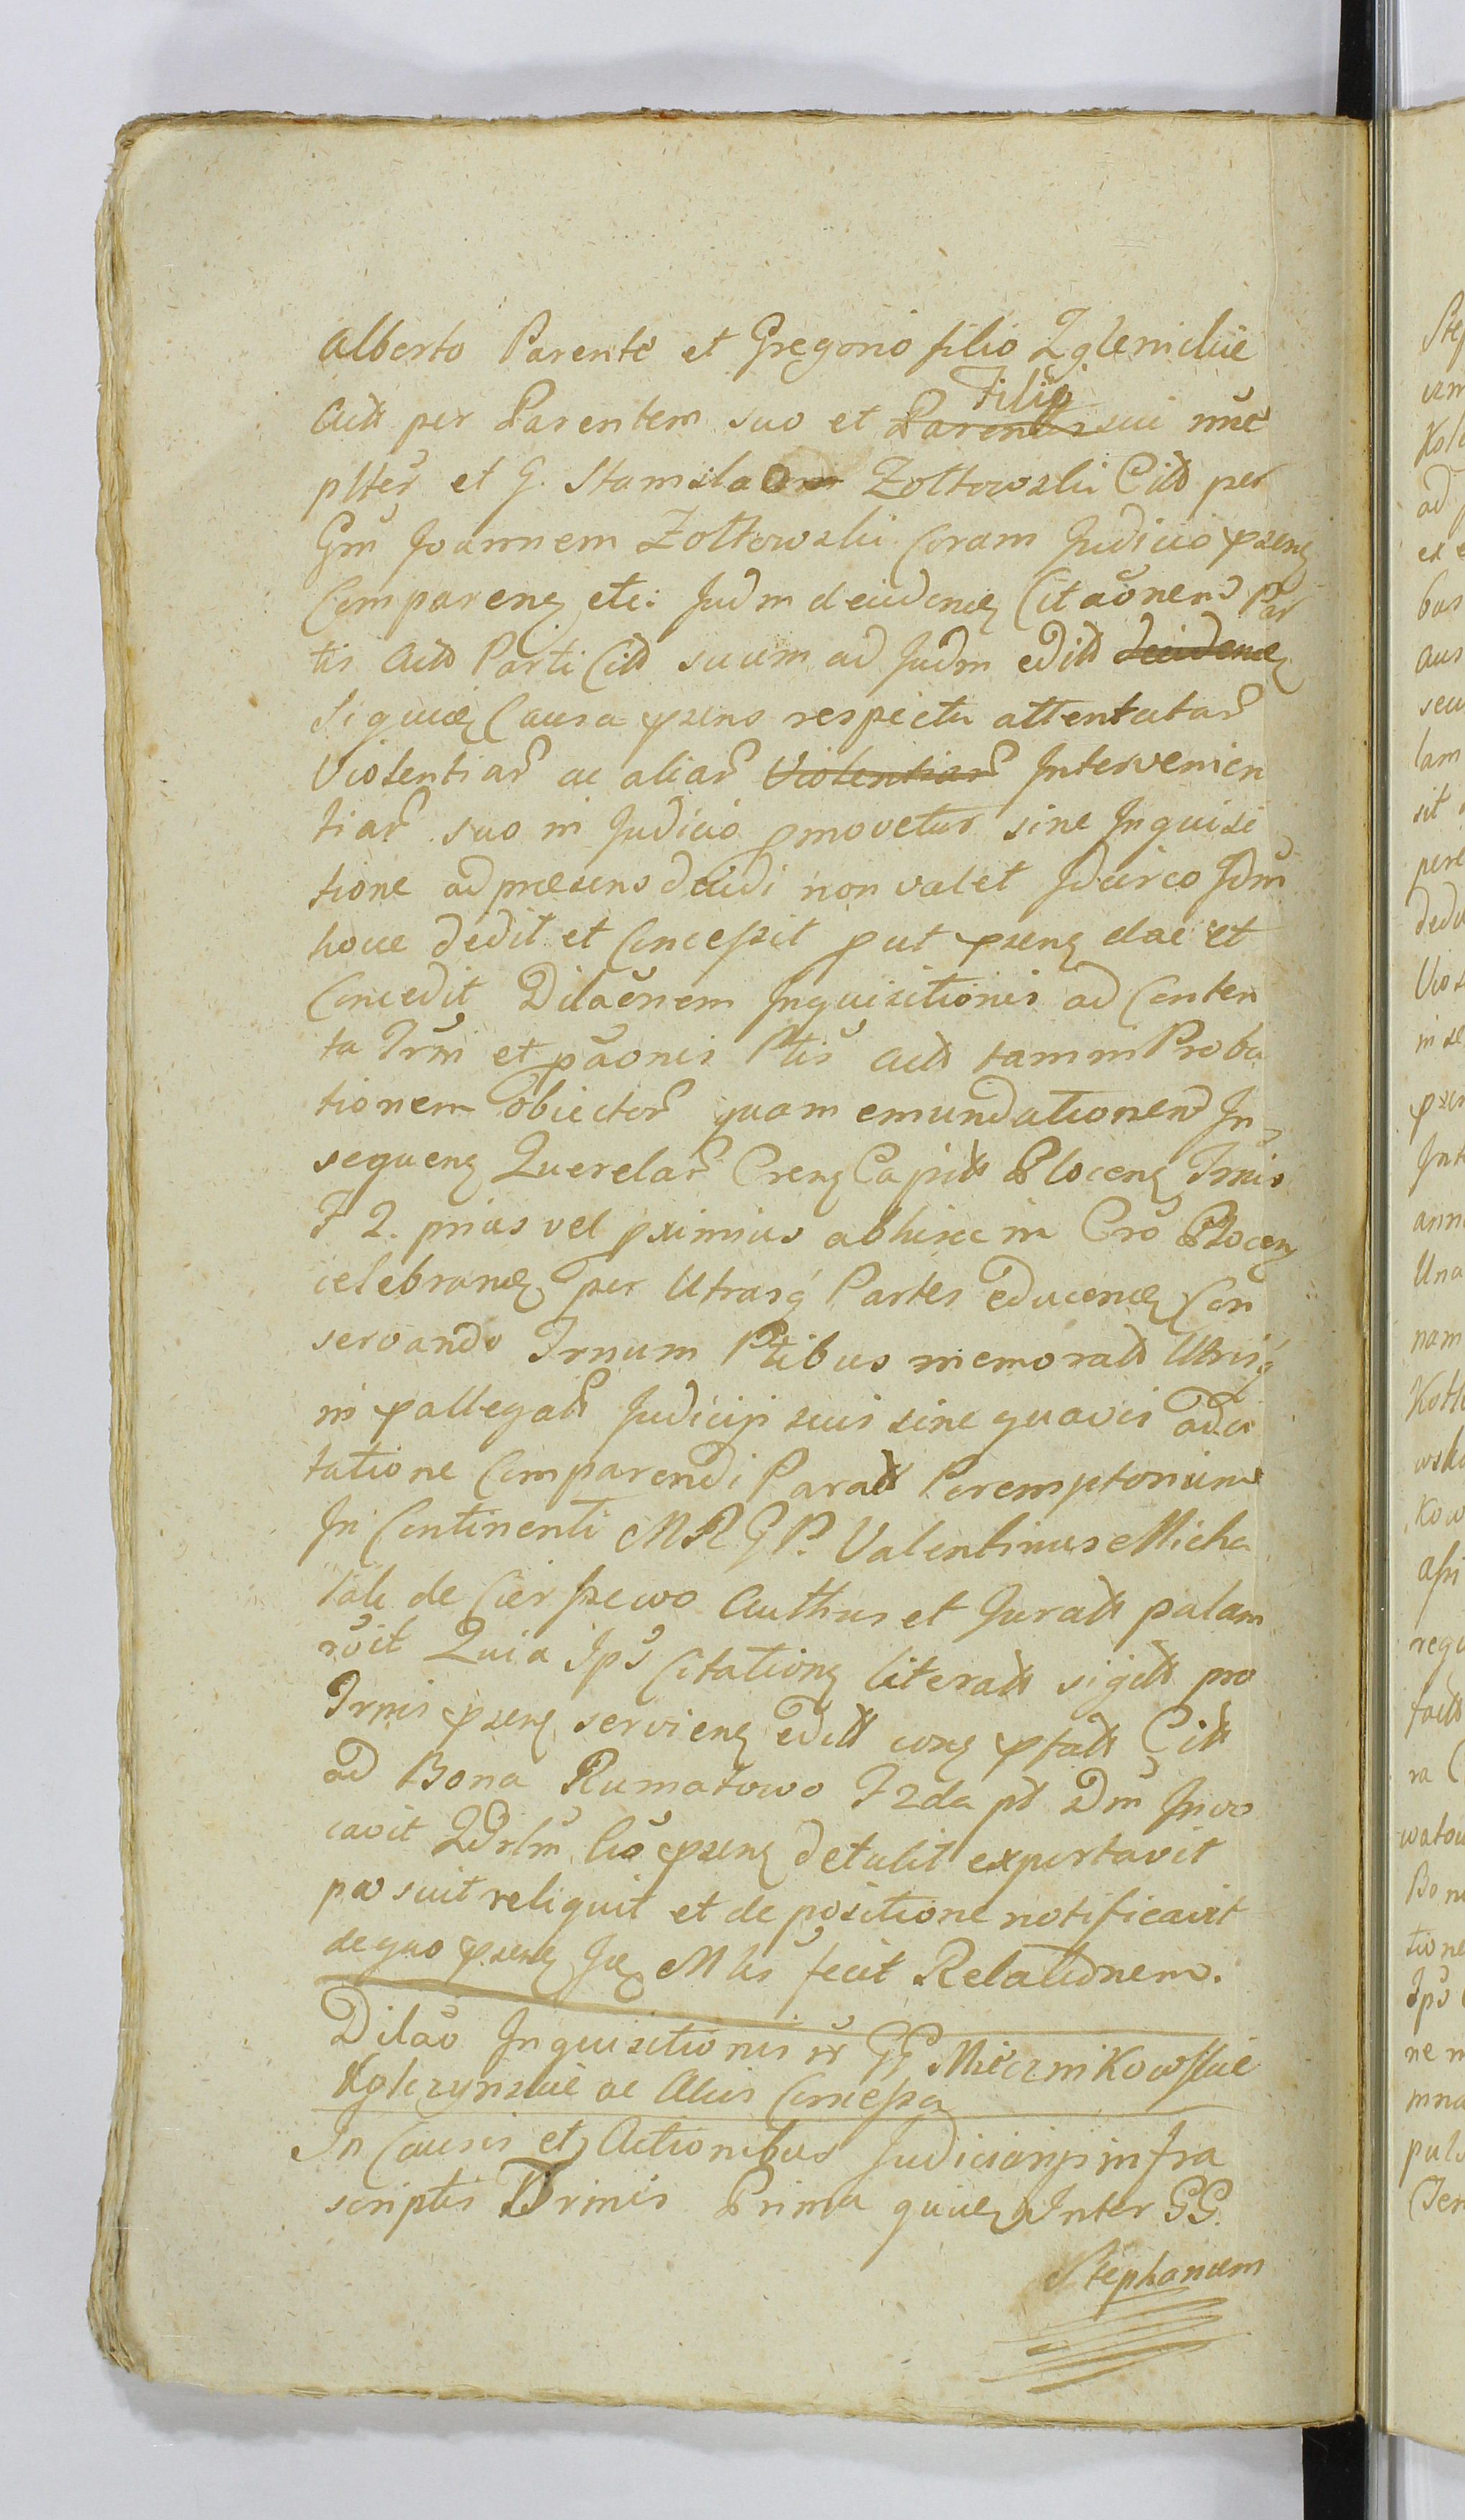 Alberto Parente et Gregorio filio Zglenickie
Actt per Parentem suo et Filij sui nuc
plter et G. Stanislao Zołtowski Citt per
Gm Joannem Zołtowski Coram Judicio psens
Comparens etc: Judm decidendo Citaonem Par
tis Actt Parti Citt suum ad Judm editt decidendo
Siquidem Causa psens respectu attentatar
Violentiar ac aliar Violentiar Intervenien
tiar suo in Judicio pmovetur sine Inquisi
tione ad præsens decidi non valet Idcirco Jdm
hocce dedit et Concessit put psens dat et
Concedit Dilaonem Inquisitionis ad Conten
ta Trm et paonis Ptis Actt tam in Proba
tionem obiector quam emundationem In
sequens Querelar Crens Capitt Plocens Trmis
F 2. prius vel pximius abhinc in Cro Plocens
celebrand per Utrasq Partes educend Con
servando Trnum Ptibus memoratt Utrisq
in pallegatt Judicijs suis sine quavis adci
tatione Comparendi Paratt Peremptorium
In Continenti MRGP. Valentinus Micha
lak de Cierszewo Authus et Juratt palam
roit Quia Ips Citations literatt sigitt pro
Trmis psens serviens editt cons pfatt Citt
ad Bona Rumatowo F 2da pt Dm Invo
cavit QDrlm lio psens detulit exportavit
posuit reliquit et de positione notificavit
de quo psens Ids Mlis fecit Relationem.
Dilao Inquisitionis nr GG Miecznikowskie
Kglczynskie ac Aliis Concessa
In Causis et Actionibus Judiciarijs infra
scriptis Trmis Prima quidem Inter GG.
Stephanum